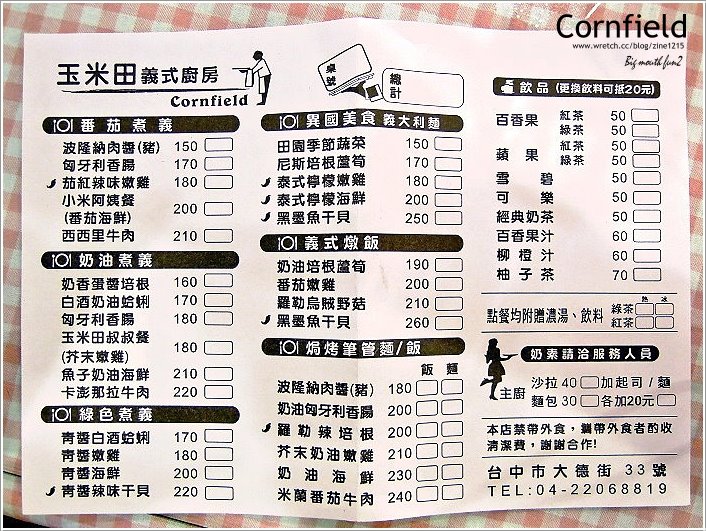 Cornfield
www.wretch.cc/blog/zine1215
Big mouth fun2
玉米田義式廚房
Cornfield
桌號
總計
番茄煮義
波隆納肉醬(豬) 150
匈牙利香腸 170
茄紅辣味嫩雞 180
小米阿姨餐
(番茄海鮮) 200
西西里牛肉 210
奶油煮義
奶香蛋醬培根 160
白酒奶油蛤蜊 170
匈牙利香腸 180
玉米田叔叔餐
(芥末嫩雞) 180
魚子奶油海鮮 210
卡澎那拉牛肉 220
綠色煮義
青醬白酒蛤蜊 170
青醬嫩雞 180
青醬海鮮 200
青醬辣味干貝 220
異國美食 義大利麵
田園季節蔬菜 150
尼斯培根蘆筍 170
泰式檸檬嫩雞 180
泰式檸檬海鮮 200
黑墨魚干貝 250
義式燉飯
奶油培根蘆筍 190
番茄嫩雞 200
羅勒烏賊野菇 210
黑墨魚干貝 260
焗烤筆管麵/飯
飯 麵
波隆納肉醬(豬) 180
奶油匈牙利香腸 200
羅勒辣培根 200
芥末奶油嫩雞 210
奶油海鮮 230
米蘭番茄牛肉 240
飲品 (更換飲料可抵20元)
百香果 紅茶 50
綠茶 50
蘋果 紅茶 50
綠茶 50
雪碧 50
可樂 50
經典奶茶 50
百香果汁 60
柳橙汁 60
柚子茶 70
熱 冰
點餐均附贈濃湯、飲料 綠茶
紅茶
奶素請洽服務人員
主廚 沙拉 40 加起司 / 麵
麵包 30 各加20元
本店禁帶外食，攜帶外食者酌收
清潔費，謝謝合作!
台中市大德街 33 號
TEL:04-22068819